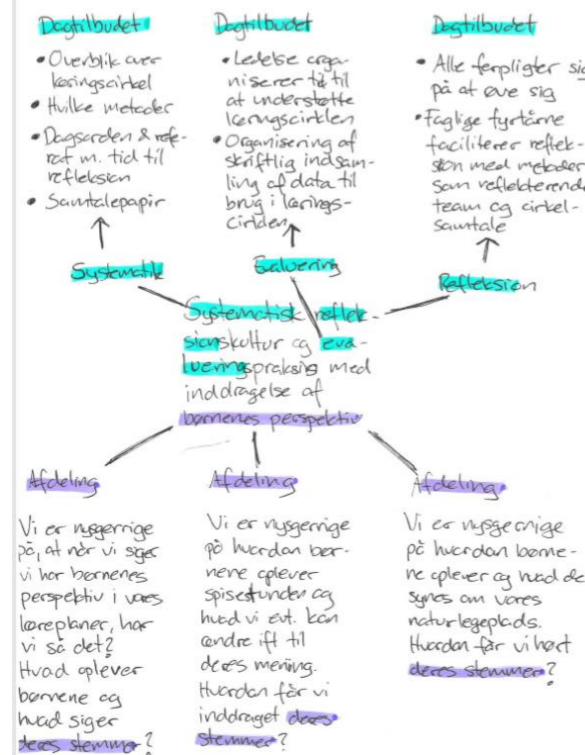 Dagtilbudet
• Overblik over
læringscirkel
• Hvilke metoder
• Dagsorden & refe-
rat m. tid til
refleksion
• Samtalepapir
Systematik
Dagtilbudet
• Ledelse orga-
niserer tid til
at understøtte
læringscirklen
• Organisering af
skriftlig indsam-
ling af data til
brug i lærings-
cirklen
Evaluering
Dagtilbudet
• Alle forpligter sig
på at øve sig
• Faglige fyrtårne
faciliterer reflek-
sion med metoder
som reflekterende
team og cirkel-
samtale
Refleksion
Systematisk reflek-
sionskultur og eva-
lueringspraksis med
inddragelse af
børnenes perspektiv
Afdeling
Vi er nysgerrige
på, at når vi siger
vi har børnenes
perspektiv i vores
læreplaner, har
vi så det?
Hvad oplever
børnene og
hvad siger
deres stemmer?
Afdeling
Vi er nysgerrige
på hvordan bør-
nene oplever
spisestunden og
hvad vi evt. kan
ændre ift til
deres mening.
Hvordan får vi
inddraget deres
stemmer?
Afdeling
Vi er nysgerrige
på hvordan børne-
ne oplever og hvad de
synes om vores
naturlegeplads.
Hvordan får vi hørt
deres stemmer?